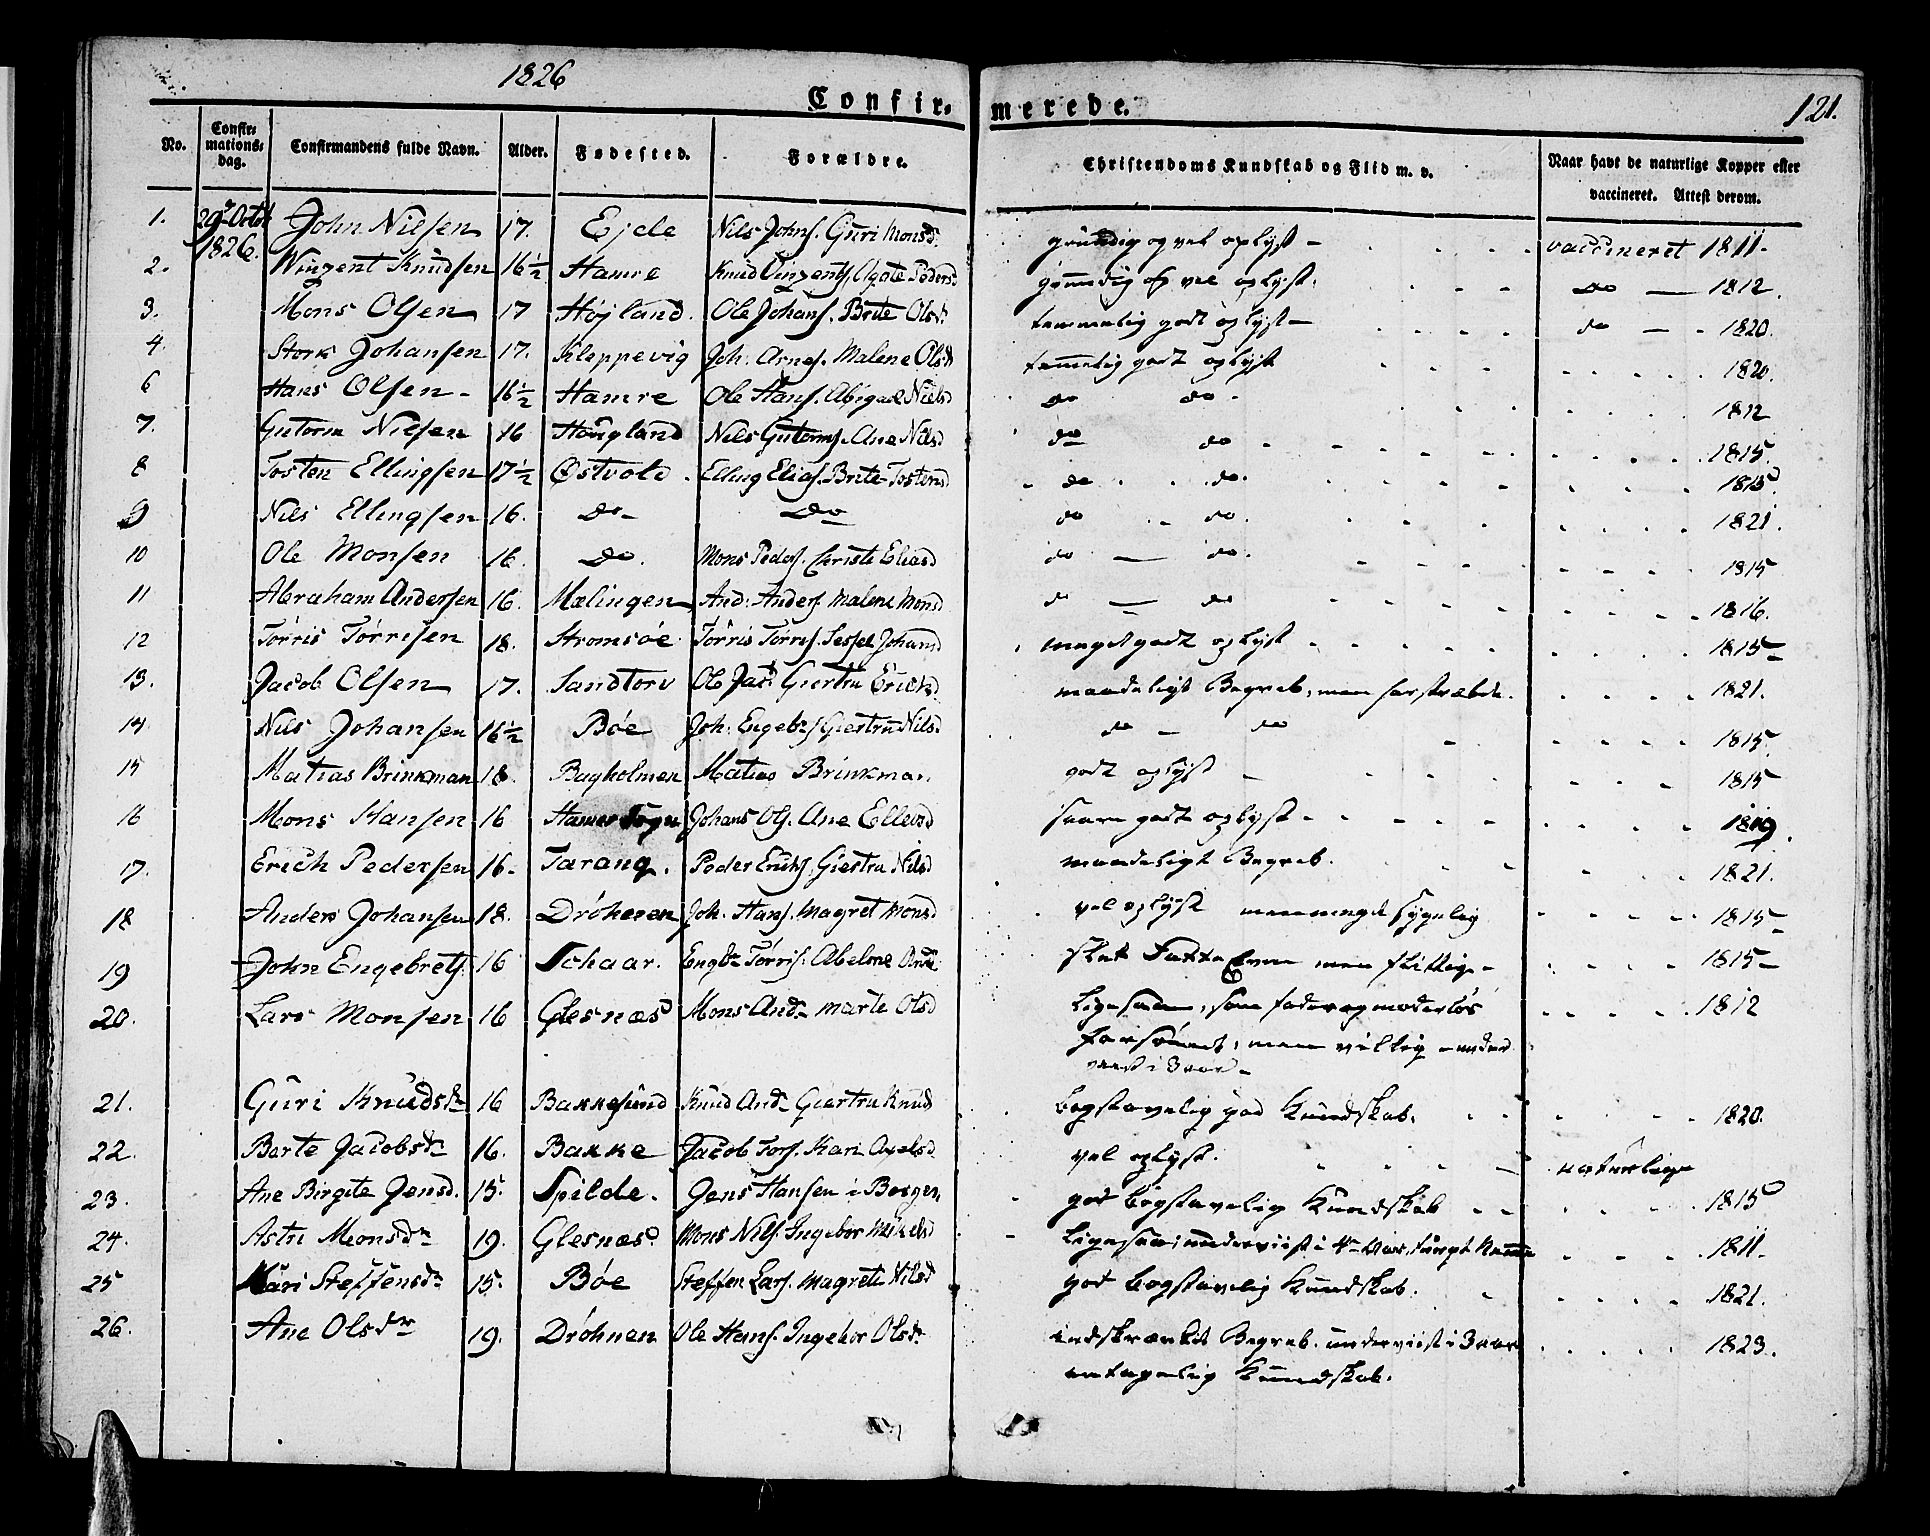 1826
Confirmerede.
121.
No. Confirmationsdag. Confirmandens fulde Navn. Alder. Fødested. Forældre. Christendoms Kundskab og Flid m. v. Naar havt de naturlige Kopper eller vaccineret. Attest derom.
1. 29 Octob 1826. John Nielsen 17. Eide Nils Johns. Guri Monsd. grundig og vel oplyst - vaccineret 1811.
2. Winzent Knudsen 16½ Hamre Knud Vinzents. Agate Pedersd grundig og vel oplyst. do — 1812.
3. Mons Olsen 17 Højland. Ole Johans. Brite Olsd. temmelig godt oplyst - do — 1820.
4. Stork Johansen 17. Kleppevig Joh. Arnes. Malene Olsd temmelig godt oplyst 1820.
6 Hans Olsen - 16½ Hamre Ole Hans. Abigael Nielsd do do - 1812
7. Gutorm Nilsen 16 Haugland Nils Gutorms. Ane Nilsd do do 1815.
8 Tosten Ellingsen 17½ Østvold. Elling Elias. Brite Tostensd do do. 1815
9 Nils Ellingsen 16. do - do do - do. 1821.
10 Ole Monsen 16. do. Mons Peders. Christi Eliasd do — do. 1815
11 Abraham Andersen 16. Mælingen And: Anders. Malene Monsd do — do 1816.
12 Tørris Tørrisen 18. Stromsøe Tørris Tørris. Sessel Johansd meget godt oplyst 1815 -
13. Jacob Olsen 17. Sandtorv Ole Jac. Giertru Ericksd. maadeligt Begreb, men 1821.
14. Nils Johansen 16½ Bøe Joh. Engebr. Giertru Nilsd do - do 1815.
15 Matias Brinkman 18. Bagholmen Matias Brinkman godt oplyst - 1815
16 Mons Hansen 16 Hamer Sogn Johans Ols. Ane Ellevsd godt oplyst - 1819.
17. Erich Pedersen 16. Tarang. Peder Ericks. Giertru Nilsd maadeligt Begreb. 1821.
18 Anders Johansen 18. Drøhenen Joh. Hans. Magret Monsd vel oplyst men meget sygelig 1815 -
19 John Engebrets. 16 Schaar. Engbr. Tørris. Abelone slet Fatte Evne men flittig - 1815 -
20. Lars Monsen 16 Glesnæs Mons And. Marte Olsd ligesaa, som fader og moderløs 1812
forsømt, men villig - under
viist i 3 aar -
21. Guri Knudsdr 16 Bakkesund Knud And. Giertru Knuds bogstavelig god Kundskab. 1820.
22. Berte Jacobsdr 16. Bakke Jacob Tors. Kari Axelsd. vel oplyst. naturlige
23. Ane Birgite Jensd. 15. Spilde. Jens Hansen i Bergen god bogstavelig Kundskab 1815
24. Astri Monsdr 19. Glesnæs Mons Nils. Ingebor Mikelsd ligesaa; underviist i 4 Aar, 1811.
25 Mari Steffensdr 15. Bøe Steffen Lars. Magrete Nilsd god bogstavelig Kundskab. 1821.
26. Ane Olsdr 19. Drøhnen Ole Hans. Ingebor Olsdr indskrænket Begreb. underviist i 3 aar 1823.
antagelig Kundskab.